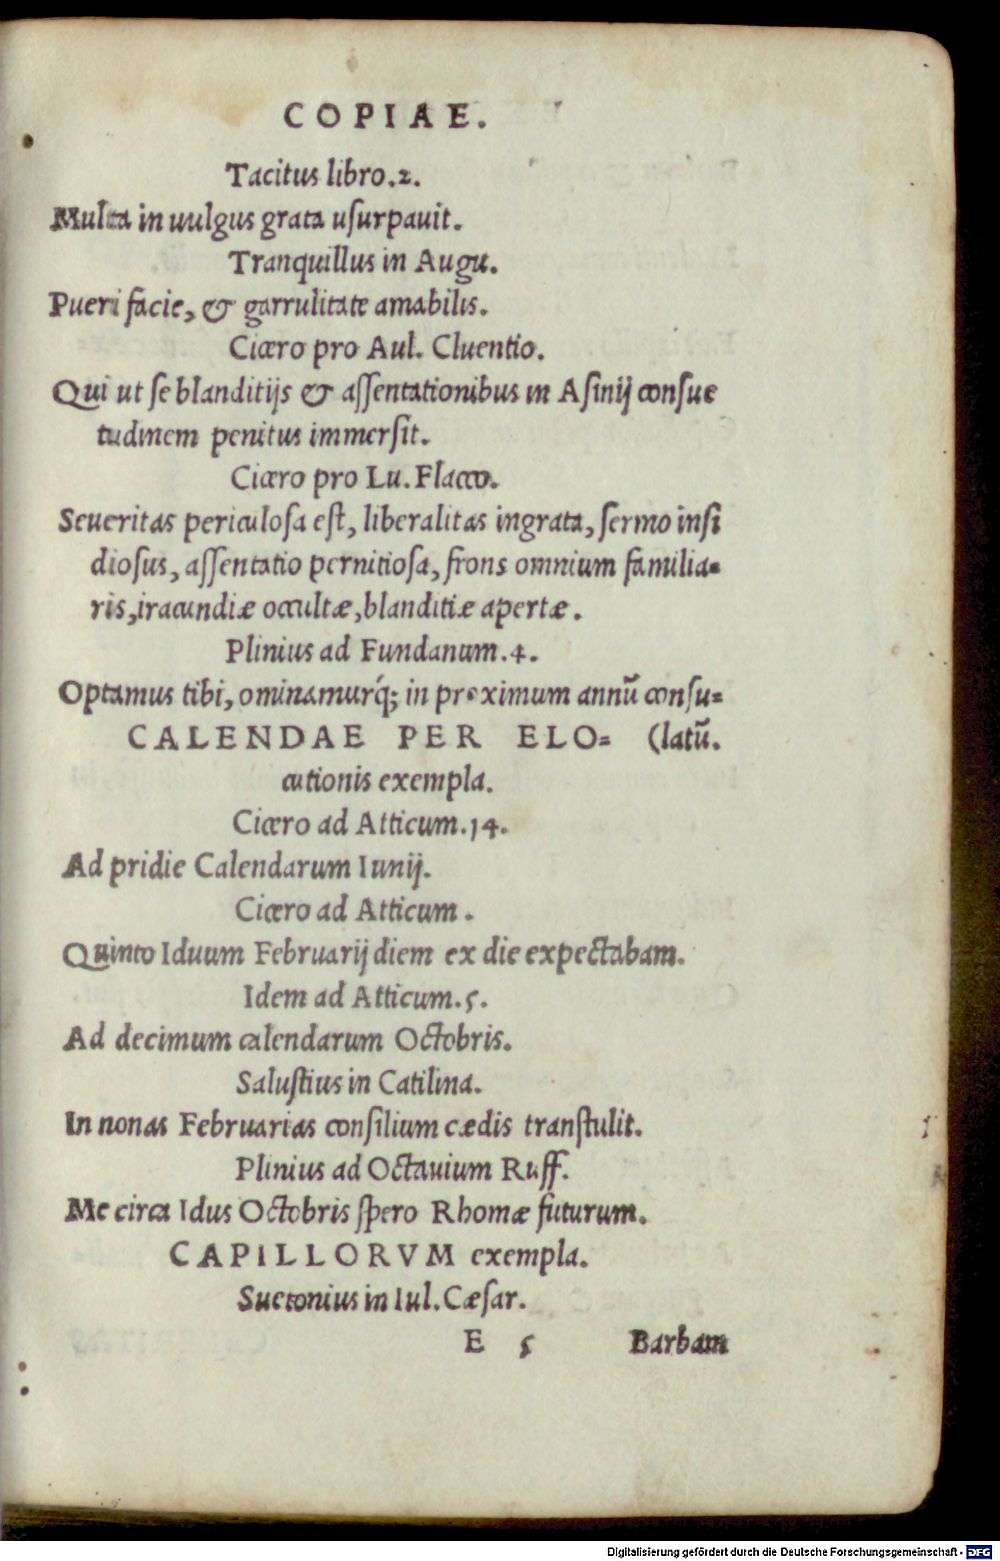 COPIAE.
Tacitus libro.2.
Multa in uulgus grata uſurpauit.
Tranquillus in Augu.
Pueri facie, & garrulitate amabilis.
Cicero pro Aul. Cluentio.
Qui ut ſe blanditijs & aſſentationibus in Aſinij conſue
tudinem penitus immerſit.
Cicero pro Lu. Flacco.
Seueritas periculoſa eſt, liberalitas ingrata, ſermo inſi
dioſus, aſſentatio pernitioſa, frons omnium familia-
ris, iracundiæ occultæ, blanditiæ apertæ.
Plinius ad Fundanum.4.
Optamus tibi, ominamurq́; in proximum annū conſu-
CALENDAE PER ELO- (latū.
cutionis exempla.
Cicero ad Atticum.14.
Ad pridie Calendarum Iunij.
Cicero ad Atticum.
Quinto Iduum Februarij diem ex die expectabam.
Idem ad Atticum.5.
Ad decimum calendarum Octobris.
Saluſtius in Catilina.
In nonas Februarias conſilium cædis tranſtulit.
Plinius ad Octauium Ruff.
Me circa Idus Octobris ſpero Rhomæ futurum.
CAPILLORVM exempla.
Suetonius in Iul. Cæſar.
E 5 Barbam
Digitalisierung gefördert durch die Deutsche Forschungsgemeinschaft - DFG